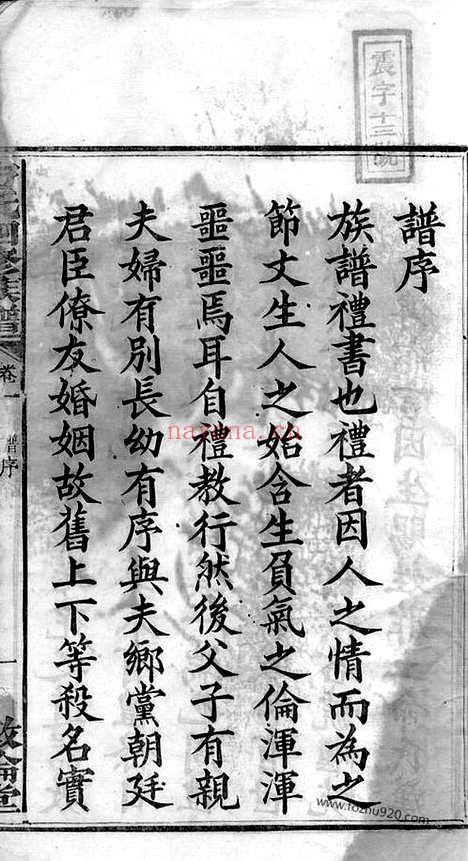 震字十三號
譜序
族譜禮書也禮者因人之情而為之
節文生人之始含生負氣之倫渾渾
噩噩焉耳自禮教行然後父子有親
夫婦有別長幼有序與夫鄉黨朝廷
君臣僚友婚姻故舊上下等殺名實
四修族譜
卷一
譜序
一
敦倫堂
nayona.cn
www.tozhu920.com